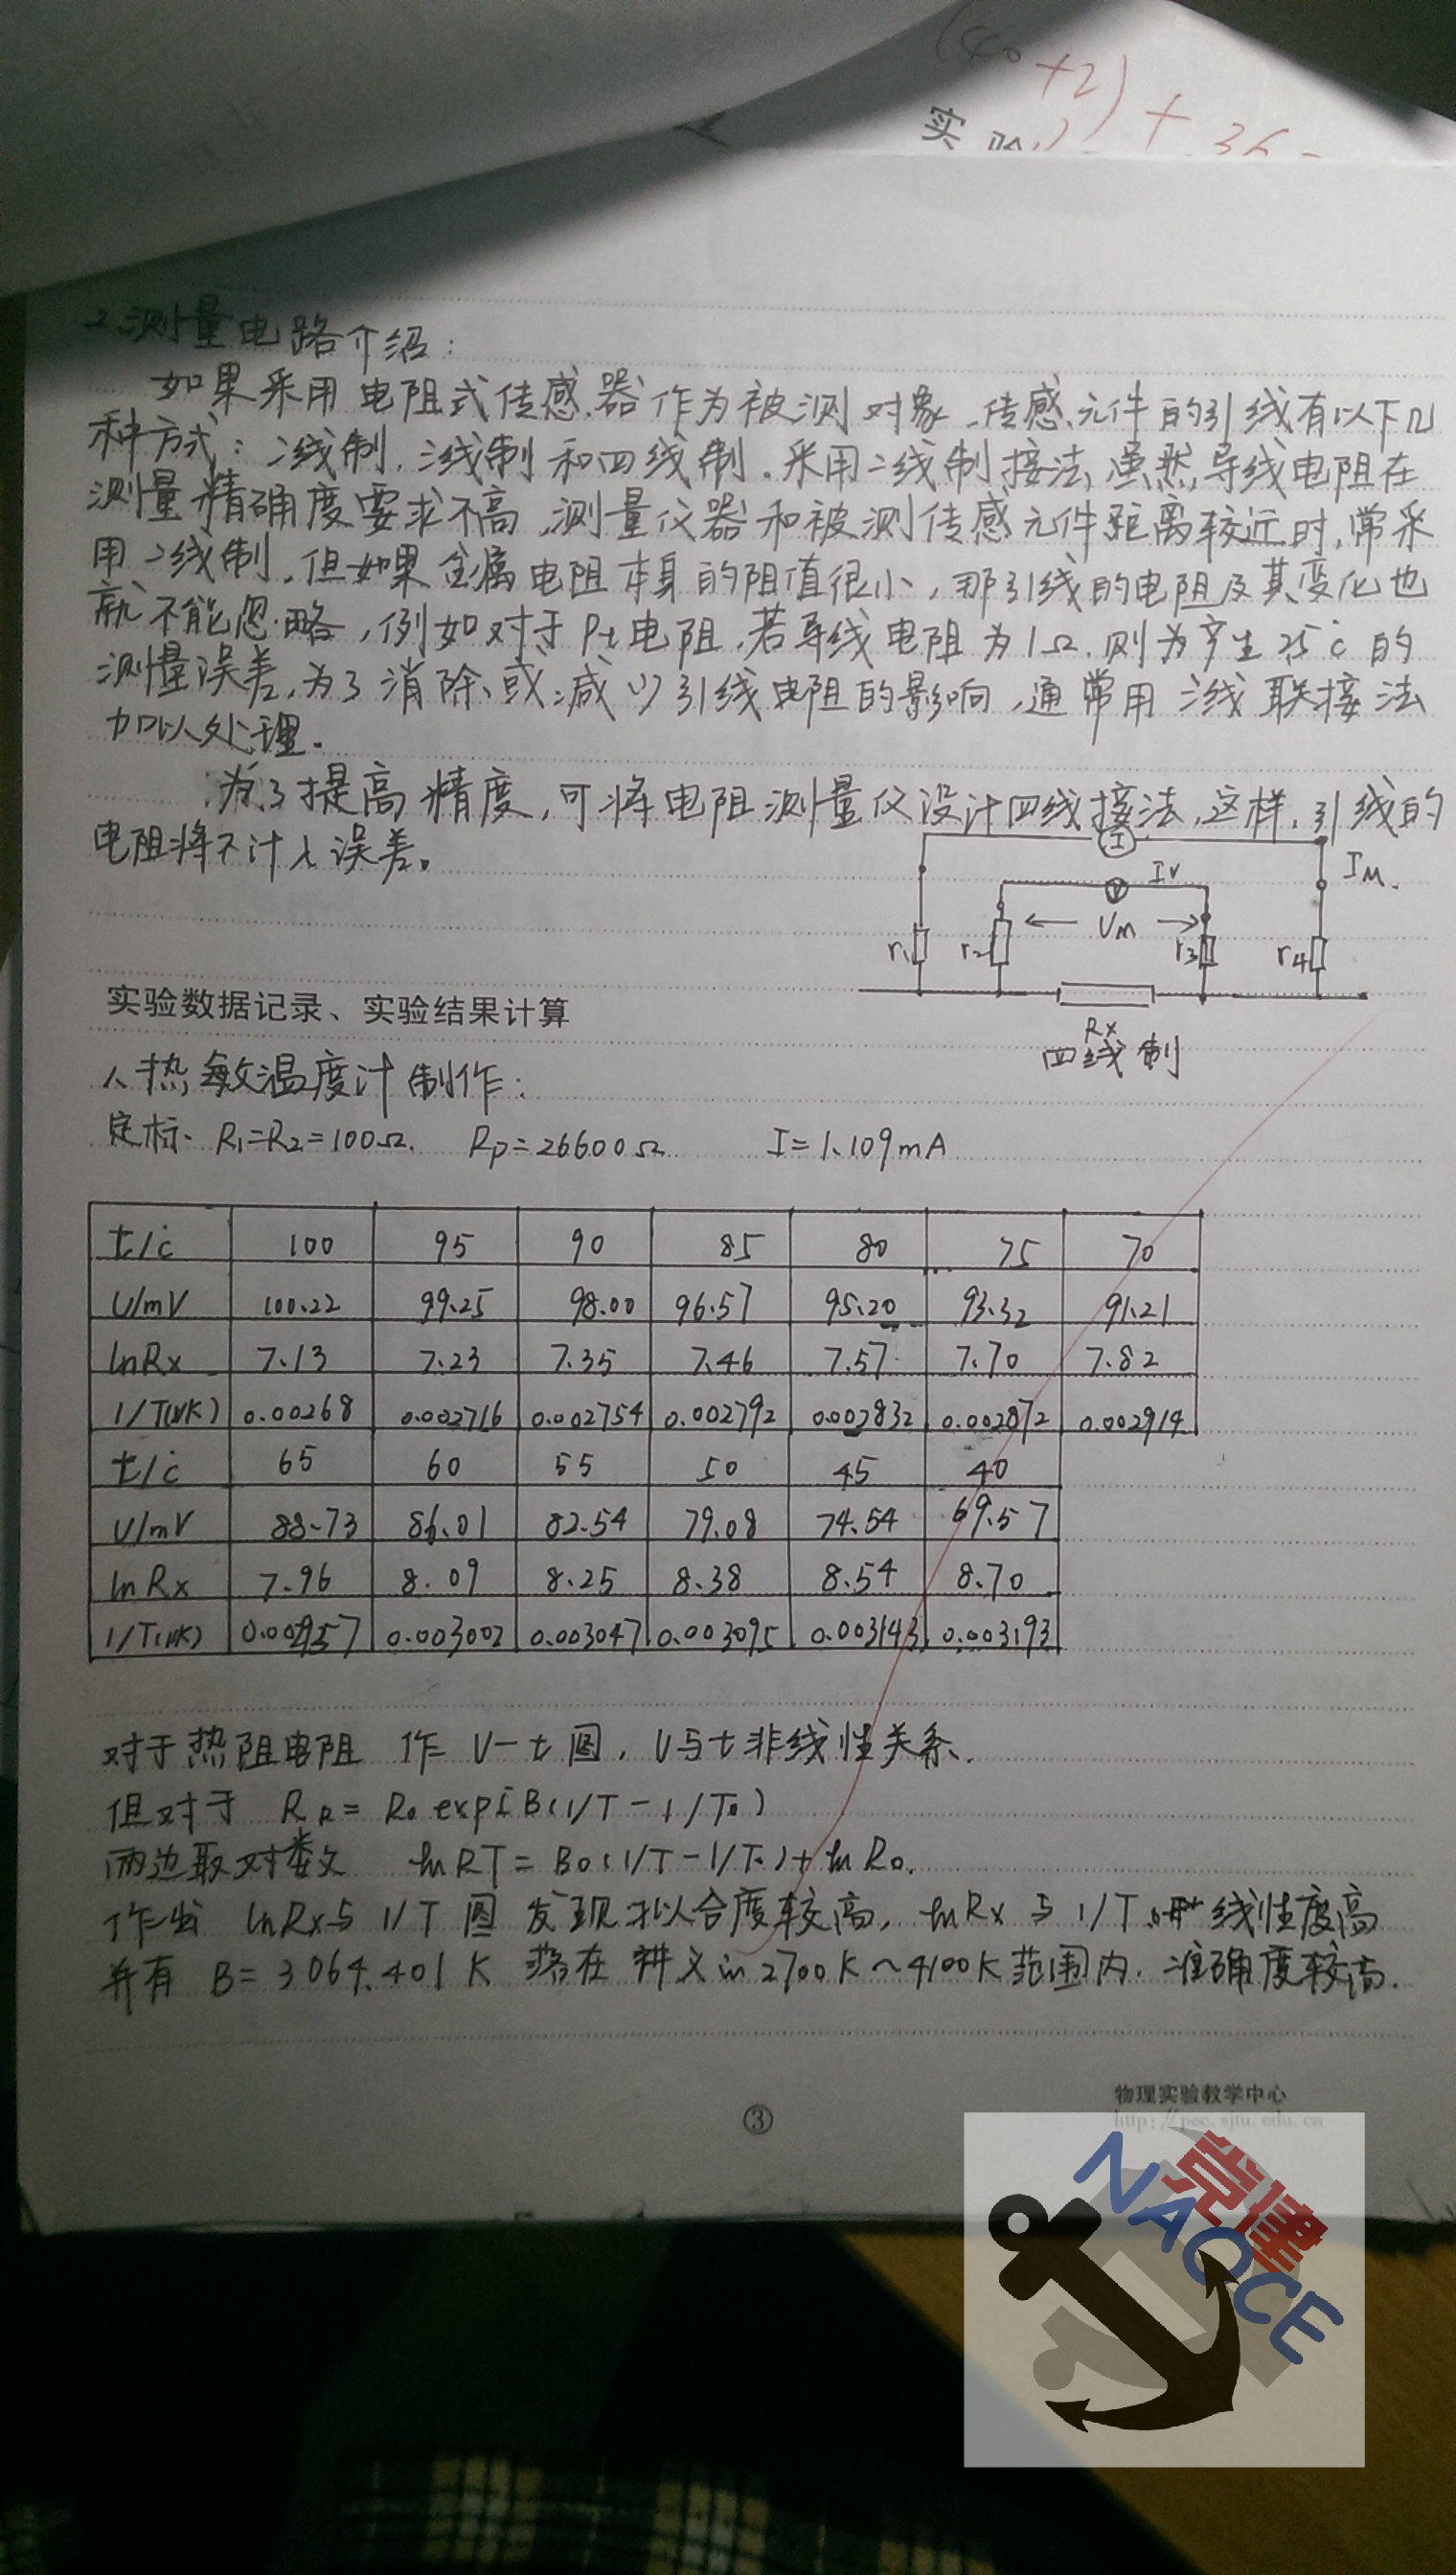 (40+2)+36
实验
2.测量电路介绍:
如果采用电阻式传感器作为被测对象,传感元件的引线有以下几
种方式:二线制,三线制和四线制.采用二线制接法,虽然,导线电阻在
测量精确度要求不高,测量仪器和被测传感元件距离较近时,常采
用二线制,但如果金属电阻本身的阻值很小,那引线的电阻及其变化也
就不能忽略,例如对于Pt电阻,若导线电阻为1Ω,则为产生2.5℃的
测量误差,为了消除或减少引线电阻的影响,通常用三线联接法
加以处理.
为了提高精度,可将电阻测量仪设计四线接法,这样,引线的
电阻将不计入误差。
I
IM.
IV
V
UM
r1
r2
r3
r4
Rx
四线制
实验数据记录、实验结果计算
1.热敏温度计制作:
定标. R1=R2=100Ω. Rp=26600Ω I=1.109mA
t/℃ 100 95 90 85 80 75 70
U/mV 100.22 99.25 98.00 96.57 95.20 93.32 91.21
lnRx 7.13 7.23 7.35 7.46 7.57 7.70 7.82
1/T(1/K) 0.00268 0.002716 0.002754 0.002792 0.002832 0.002872 0.002914
t/℃ 65 60 55 50 45 40
U/mV 88.73 86.01 82.54 79.08 74.54 69.57
lnRx 7.96 8.09 8.25 8.38 8.54 8.70
1/T(1/K) 0.002957 0.003002 0.003047 0.003095 0.003143 0.003193
对于热阻电阻 作U-t图,U与t非线性关系.
但对于 RR=R0 exp[B(1/T-1/T0)
两边取对数 lnRT=B0(1/T-1/T0)+lnR0.
作出 lnRx与1/T图 发现拟合度较高,lnRx与1/T 线性度高
并有 B=3064.401K 落在讲义的2700K~4100K范围内.准确度较高.
③
物理实验教学中心
http://pec.sjtu.edu.cn
党建
NAOCE